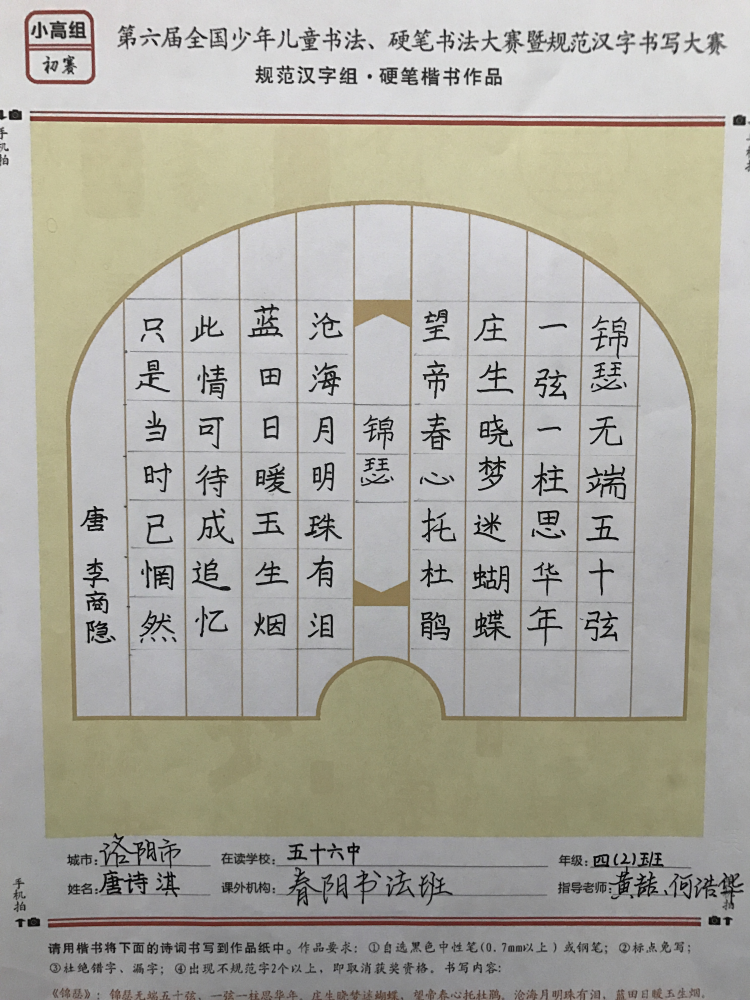 小高组
初赛
第六届全国少年儿童书法、硬笔书法大赛暨规范汉字书写大赛
规范汉字组·硬笔楷书作品
手机拍
锦瑟无端五十弦
一弦一柱思华年
庄生晓梦迷蝴蝶
望帝春心托杜鹃
锦瑟
沧海月明珠有泪
蓝田日暖玉生烟
此情可待成追忆
只是当时已惘然
唐 李商隐
城市:洛阳市 在读学校:五十六中 年级:四(2)班
姓名:唐诗淇 课外机构:春阳书法班 指导老师:黄喆、何浩骅
手机拍
请用楷书将下面的诗词书写到作品纸中。作品要求:①自选黑色中性笔(0.7mm以上)或钢笔;②标点免写;
③杜绝错字、漏字;④出现不规范字2个以上,即取消获奖资格。书写内容:
《锦瑟》:锦瑟无端五十弦,一弦一柱思华年。庄生晓梦迷蝴蝶,望帝春心托杜鹃。沧海月明珠有泪,蓝田日暖玉生烟。